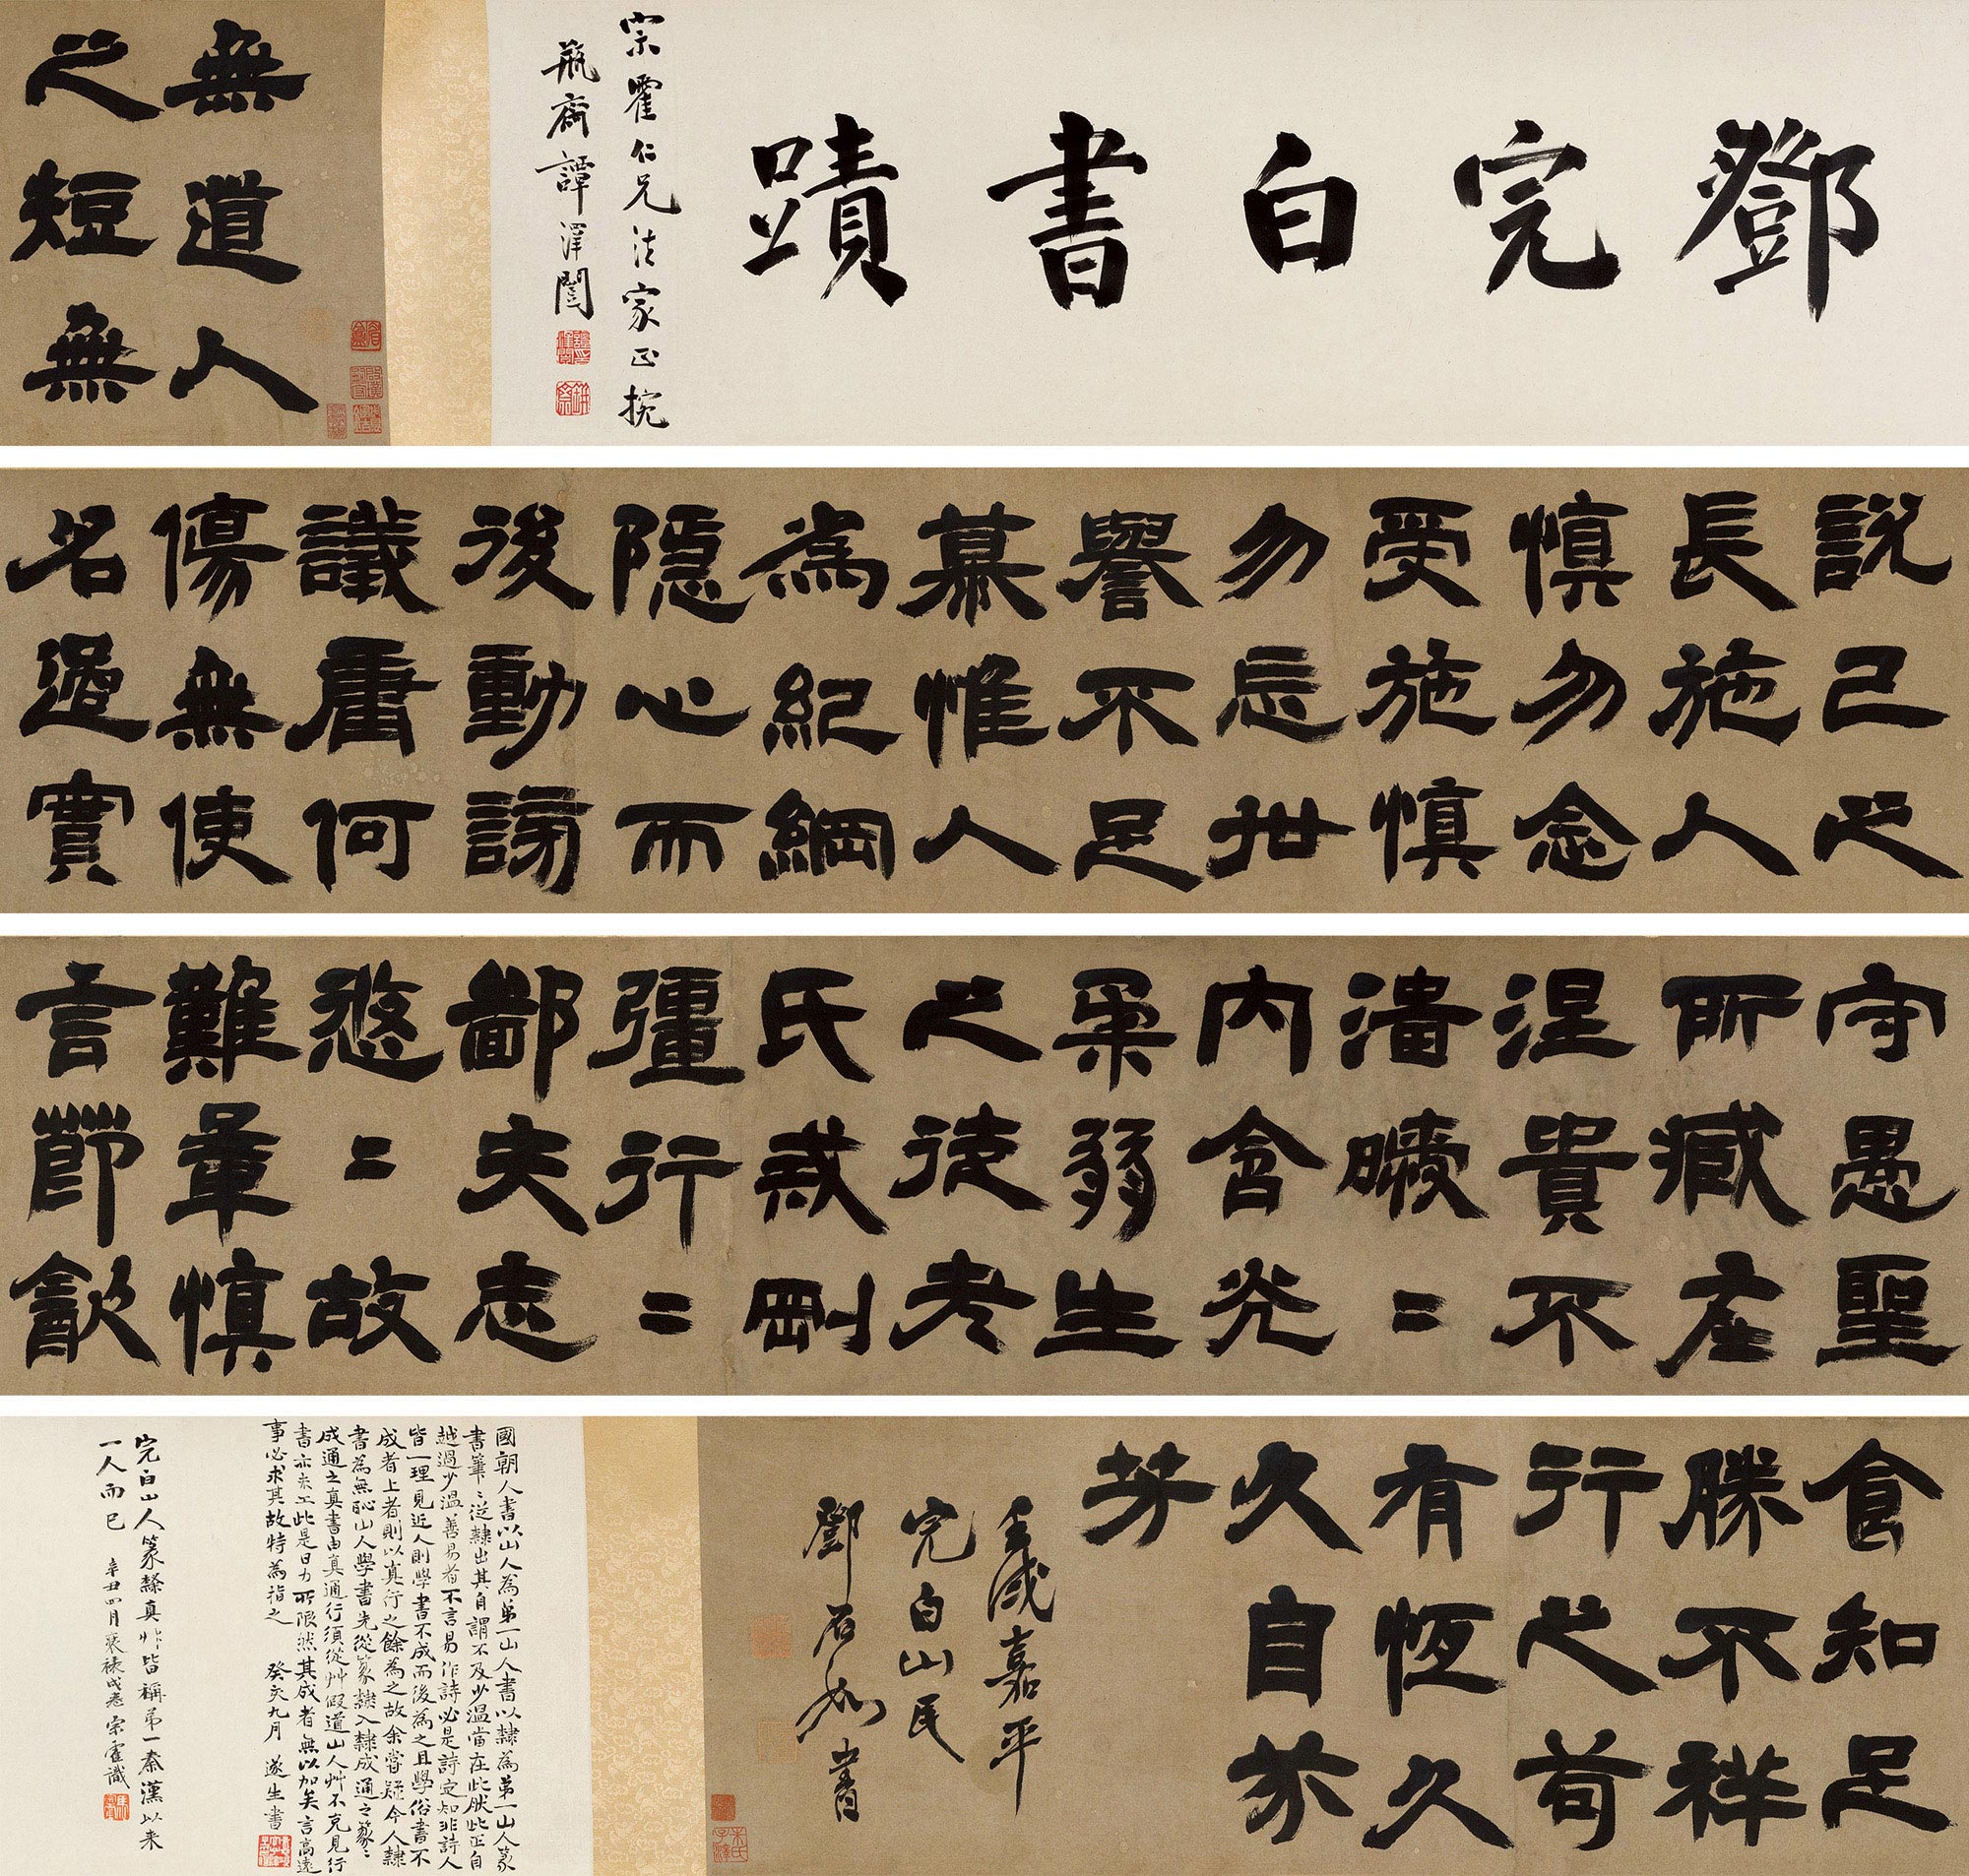 鄧完白書蹟
宗霍仁兄法家正捥
瓶齋譚澤闓
無道人
之短無
說己之
長施人
慎勿念
受施慎
勿忘世
譽不足
慕惟人
為紀綱
隱心而
後動謗
議庸何
傷無使
名過實
守愚聖
所臧在
涅貴不
淄曖〻
內含光
柔弱生
之徒老
氏戒剛
彊行〻
鄙夫志
悠〻故
難量慎
言節飲
食知足
勝不祥
行之苟
有恆久
久自芬
芳
壬戌嘉平
完白山民
鄧石如書
國朝人書以山人為第一山人書以隸為第一山人篆
書筆〻從隸出其自謂不及少溫當在此肰此正自
越過少溫善易者不言易作詩必是詩定知非詩人
皆一理見近人則學書不成而後為之且學俗書不
成者上者則以真行之餘為之故余嘗疑今人隸
書為無恥山人學書先從篆隸入隸成通之篆〻
成通之真書由真通行須從艸假道山人艸不克見行
書亦未工此是日力所限然其成者無以加矣言高遠
事必求其故特為指之 癸亥九月 遂生書
完白山人篆隸真艸皆稱弟一秦漢以来
一人而已 辛丑四月裝褫成卷宗霍識